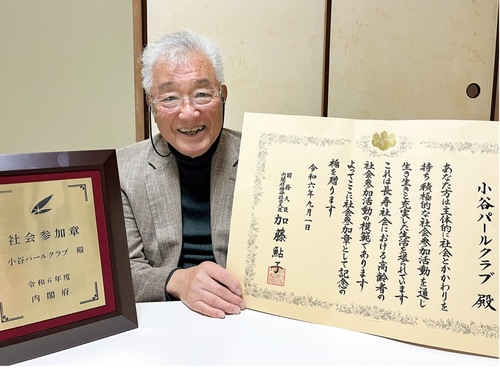 社会参加章
小谷パールクラブ 殿
令和6年度
内閣府
小谷パールクラブ 殿
あなた方は主体的に社会とかかわりを
持ち積極的な社会参加活動を通し
生き生きと充実した生活を送られています
これは長寿社会における高齢者の
社会参加活動の模範であります
よってここに社会参加章として記念の
楯を贈ります
令和六年九月一日
国務大臣
加藤鮎子